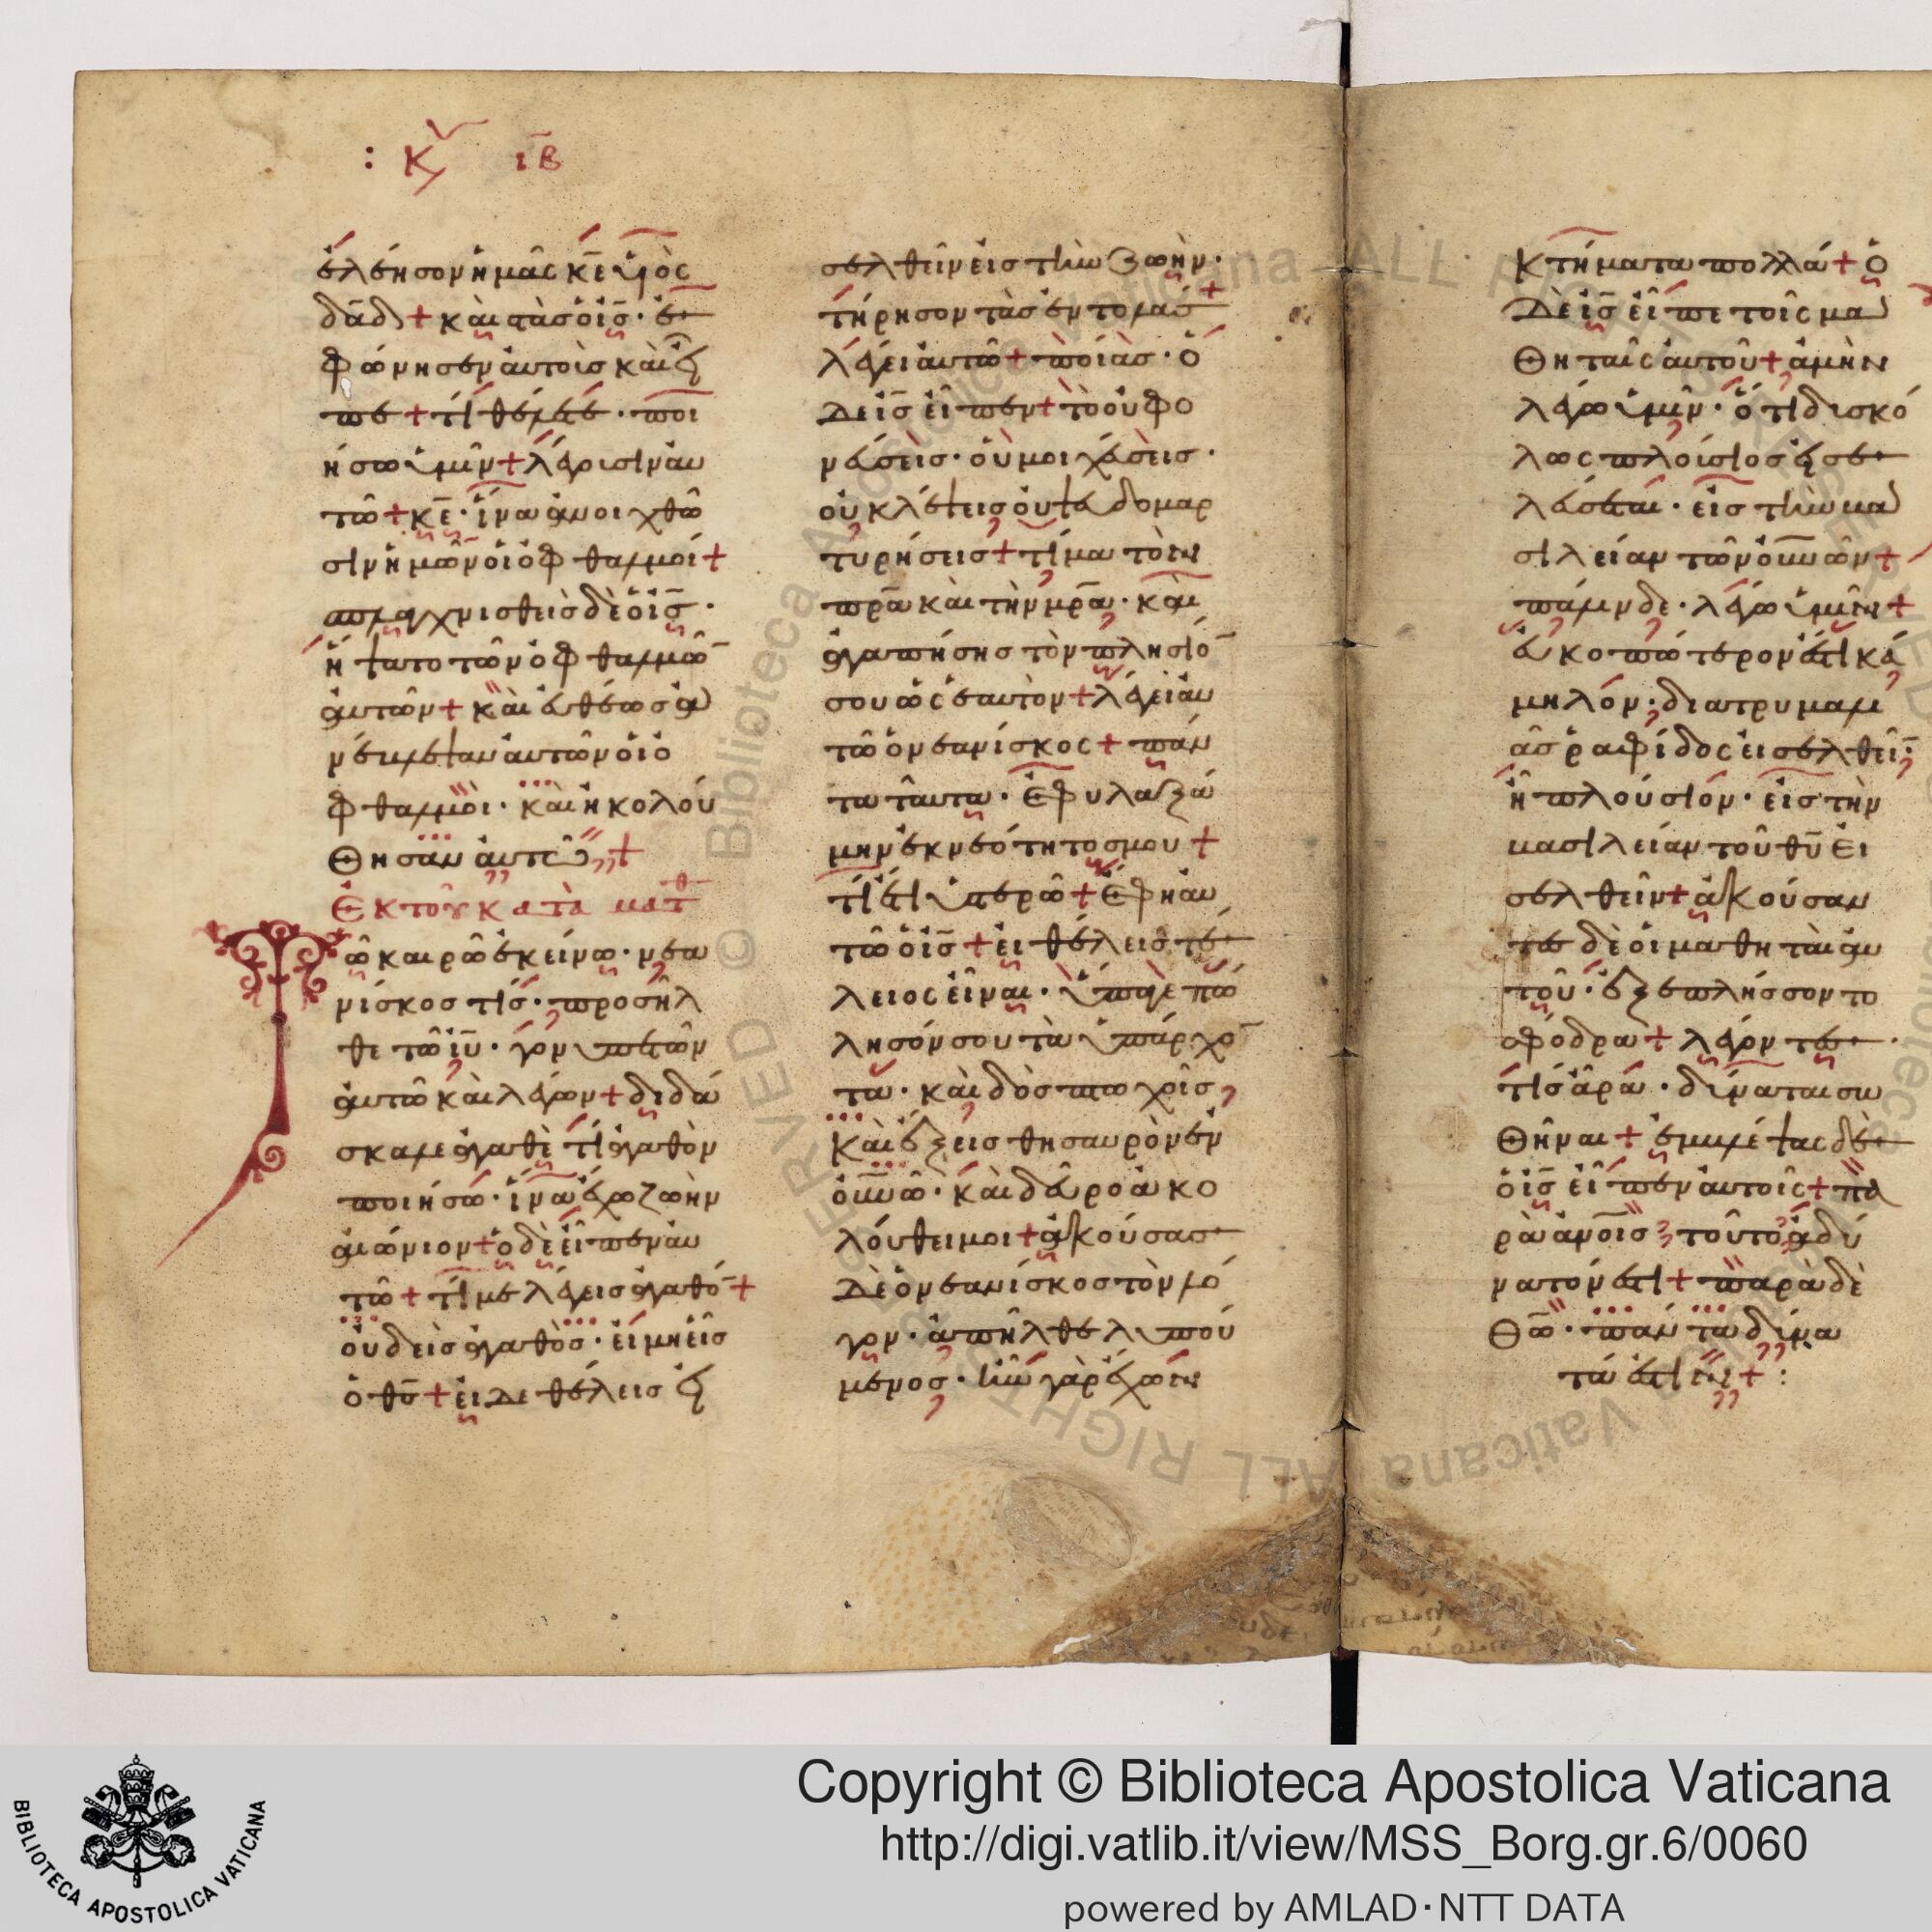 : Κυ ιβ
ἐλέησον ἡμᾶς κε υἱὸς
δαδ + καὶ στὰς ὁ ις · ἐ
φώνησεν αὐτοὶς καὶ εἶ
πε + τί θέλετε · ποι
ήσω ὑμῖν + λέγουσιν αυ
τῶ + κε · ἵνα ἀνοιχθῶ
σιν ἡμῶν οἱ ὀφθαλμοί +
σπλαγχνισθεὶς δὲ ὁ ις ·
ἥψατο τῶν ὀφθαλμῶ
αὐτῶν + καὶ εὐθέως ἀ
νέβλεψαν αὐτῶν οἱ ὀ
φθαλμοὶ · καὶ ἠκολού
θησαν αὐτῶ +
Ἐκ τοῦ κατὰ ματθ
Τῶ καιρῶ ἐκείνω · νεα
νίσκος τίς · προσῆλ
θε τῶ ιυ · γονυπετῶν
αὐτῶ καὶ λέγων + διδά
σκαλε ἀγαθὲ τί ἀγαθὸν
ποιήσω · ἵνα ἔχω ζωὴν
αἰώνιον + ὁ δὲ εἶπεν αυ
τῶ + τί με λέγεις ἀγαθό +
οὐδεὶς ἀγαθὸς · εἰ μὴ εἷς
ὁ θς + εἰ δε θέλεις εἰ
σελθεῖν εἰς τὴν ζωὴν ·
τήρησον τὰς ἐντολάς +
λέγει αὐτῶ + ποίας · ὁ
δε ις εἶπεν + τὸ οὐ φο
νεύσεις · οὐ μοιχεύσεις ·
οὐ κλέψεις οὐ ψευδομαρ
τυρήσεις + τίμα τὸν
πρα καὶ τὴν μρα · καὶ
ἀγαπήσης τὸν πλησίο
σου ὡς ἑαυτὸν + λέγει αυ
τῶ ὁ νεανίσκος + πάν
τα ταῦτα · ἐφυλαξά
μην ἐκ νεότητος μου +
τί ἔτι ὑστερῶ + ἔφη αυ
τῶ ὁ ις + εἰ θέλεις τέ
λειος εἶναι · ὕπαγε πώ
λησόν σου τὰ ὑπάρχο
τα · καὶ δὸς πτωχοῖς,
καὶ ἕξεις θησαυρὸν ἐν
οὐνω · καὶ δεῦρο ἀκο
λούθει μοι + ἀκούσας
δὲ ὁ νεανίσκος τὸν λό
γον · ἀπῆλθε λυπού
μενος · ἦν γὰρ ἔχων
Κτήματα πολλά + ὁ
δὲ ις εἶπε τοῖς μα
θηταῖς αὐτοῦ + ἀμὴν
λέγω ὑμῖν · ὅτι δισκό
λως πλούσιος εἰσε
λεύσεται · εἰς τὴν βα
σιλείαν τῶν οὐνων +
πάλιν δε · λέγω ὑμῖν +
εὐκοπώτερον ἐστι κά
μηλόν · διατρυμαλι
ᾶς ῥαφίδος εἰσελθεῖ,
ἢ πλούσιόν · εἰς τὴν
βασιλείαν τοῦ θυ εἰ
σελθεῖν + ἀκούσαν
τες δὲ οἱ μαθηταὶ αυ
τοῦ · ἐξεπλήσσοντο
σφόδρα + λέγοντες ·
τίς ἄρα · δύναται σω
θῆναι + ἐμβλέψας δὲ
ὁ ις εἶπεν αὐτοῖς + πα
ρὰ ἀνοις τοῦτο ἀδύ
νατόν ἐστι + παρὰ δὲ
θω · πάντα δύνα
τά ἐστιν + :
Copyright © Biblioteca Apostolica Vaticana
http://digi.vatlib.it/view/MSS_Borg.gr.6/0060
powered by AMLAD·NTT DATA
BIBLIOTECA APOSTOLICA VATICANA